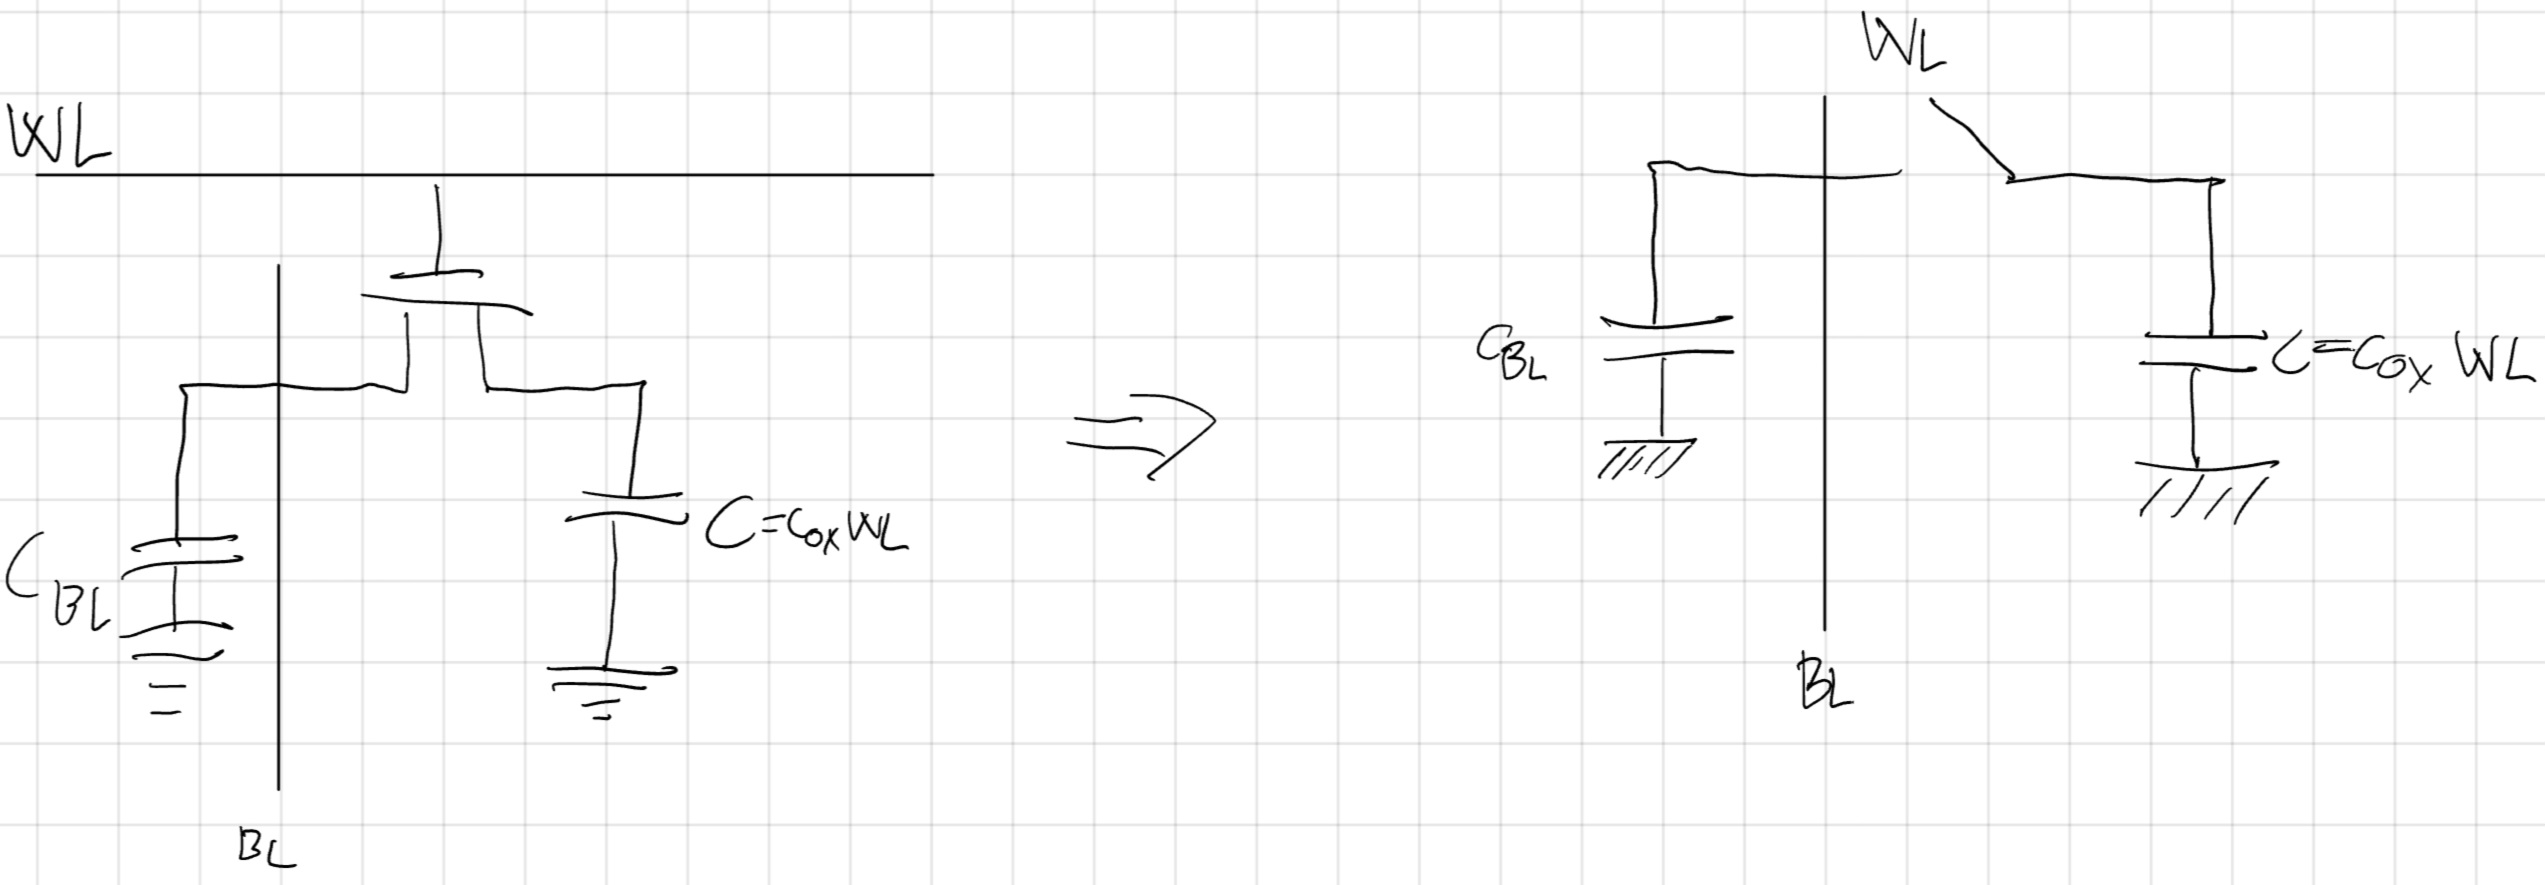 WL
C_BL
C=C_ox WL
BL
WL
C_BL
C=C_ox WL
BL